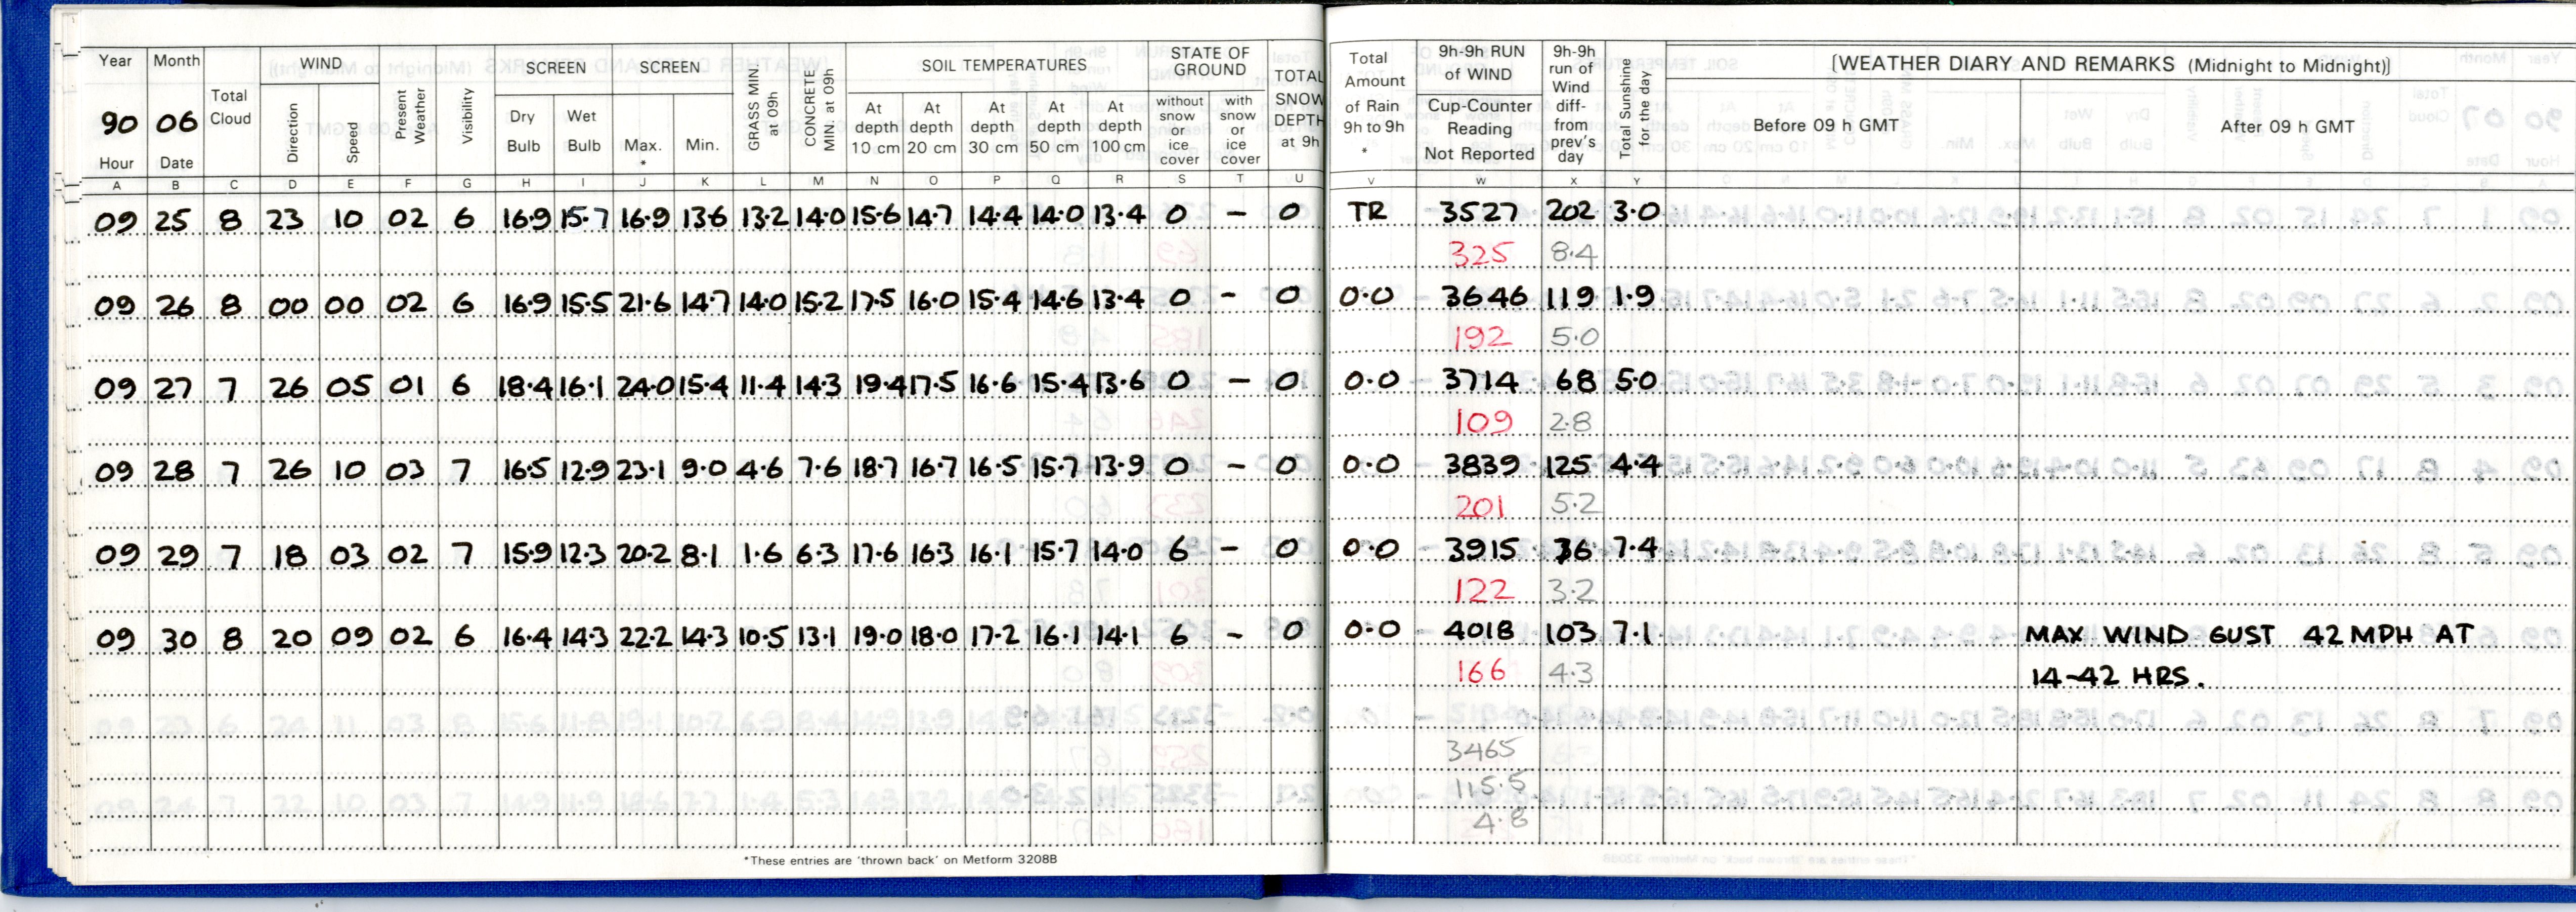 Year Month Total Cloud WIND Present Weather Visibility SCREEN SCREEN GRASS MIN. at 09h CONCRETE MIN. at 09h SOIL TEMPERATURES STATE OF GROUND TOTAL SNOW DEPTH at 9h Total Amount of Rain 9h to 9h * 9h-9h RUN of WIND 9h-9h run of Wind diff- from prev's day Total Sunshine for the day [WEATHER DIARY AND REMARKS (Midnight to Midnight)]
90 06 Direction Speed Dry Bulb Wet Bulb Max. * Min. At depth 10 cm At depth 20 cm At depth 30 cm At depth 50 cm At depth 100 cm without snow or ice cover with snow or ice cover Cup-Counter Reading Not Reported Before 09 h GMT After 09 h GMT
Hour Date
A B C D E F G H I J K L M N O P Q R S T U V W X Y
09 25 8 23 10 02 6 16.9 15.7 16.9 13.6 13.2 14.0 15.6 14.7 14.4 14.0 13.4 0 – 0 TR 3527 202 3.0
325 8.4
09 26 8 00 00 02 6 16.9 15.5 21.6 14.7 14.0 15.2 17.5 16.0 15.4 14.6 13.4 0 – 0 0.0 3646 119 1.9
192 5.0
09 27 7 26 05 01 6 18.4 16.1 24.0 15.4 11.4 14.3 19.4 17.5 16.6 15.4 13.6 0 – 0 0.0 3714 68 5.0
109 2.8
09 28 7 26 10 03 7 16.5 12.9 23.1 9.0 4.6 7.6 18.7 16.7 16.5 15.7 13.9 0 – 0 0.0 3839 125 4.4
201 5.2
09 29 7 18 03 02 7 15.9 12.3 20.2 8.1 1.6 6.3 17.6 16.3 16.1 15.7 14.0 6 – 0 0.0 3915 7.4
122 3.2
09 30 8 20 09 02 6 16.4 14.3 22.2 14.3 10.5 13.1 19.0 18.0 17.2 16.1 14.1 6 – 0 0.0 4018 103 7.1 MAX WIND GUST 42 MPH AT
166 4.3 14-42 HRS.
3465
115.5
4.8
*These entries are 'thrown back' on Metform 3208B